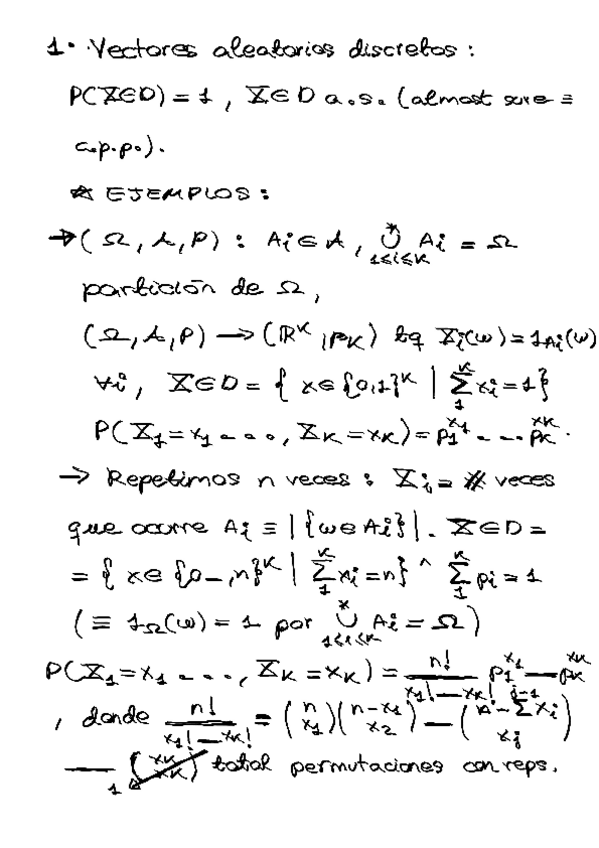 1· Vectores aleatorios discretos :
P(X∈D) = 1 , X∈D a.s. (almost sure ≡
c.p.p.).
☆ EJEMPLOS :
→ (Ω, A, P) : Ai ∈ A , ∪* 1≤i≤k Ai = Ω
partición de Ω ,
(Ω, A, P) → (ℝ^k , βk) tq Xi(ω) = 1Ai(ω)
∀i , X∈D = { x∈{0,1}^k | Σ_1^k xi = 1}
P(X1 = x1 - - - , Xk = xk) = p1^x1 - - - pk^xk .
→ Repetimos n veces : Xi = # veces
que ocurre Ai ≡ |{ω∈Ai}|. X∈D =
= { x∈{0—,n}^k | Σ_1^k xi = n} ^ Σ_1^k pi = 1
(≡ 1Ω(ω) = 1 por ∪* 1≤i≤k Ai = Ω)
P(X1 = x1 - - - , Xk = xk) = n!/(x1!—xk!) p1^x1 — pk^xk
, donde n!/(x1!—xk!) = (n x1)(n-x1 x2) — (n - Σ^(j-1) xi xj)
— (xk xk) 1 total permutaciones con reps.